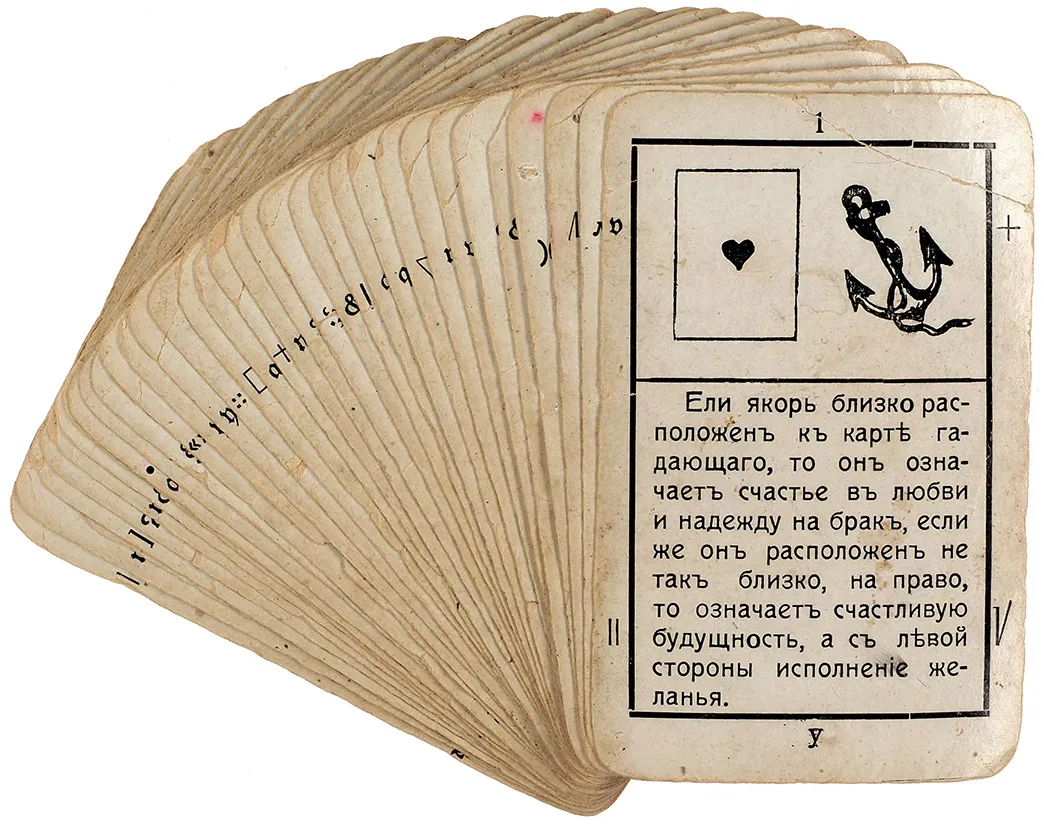 1
+
Ели якорь близко рас-
положенъ къ картѣ га-
дающаго, то онъ озна-
чаетъ счастье въ любви
и надежду на бракъ, если
же онъ расположенъ не
такъ близко, на право,
то означаетъ счастливую
будущность, а съ лѣвой
стороны исполненіе же-
ланья.